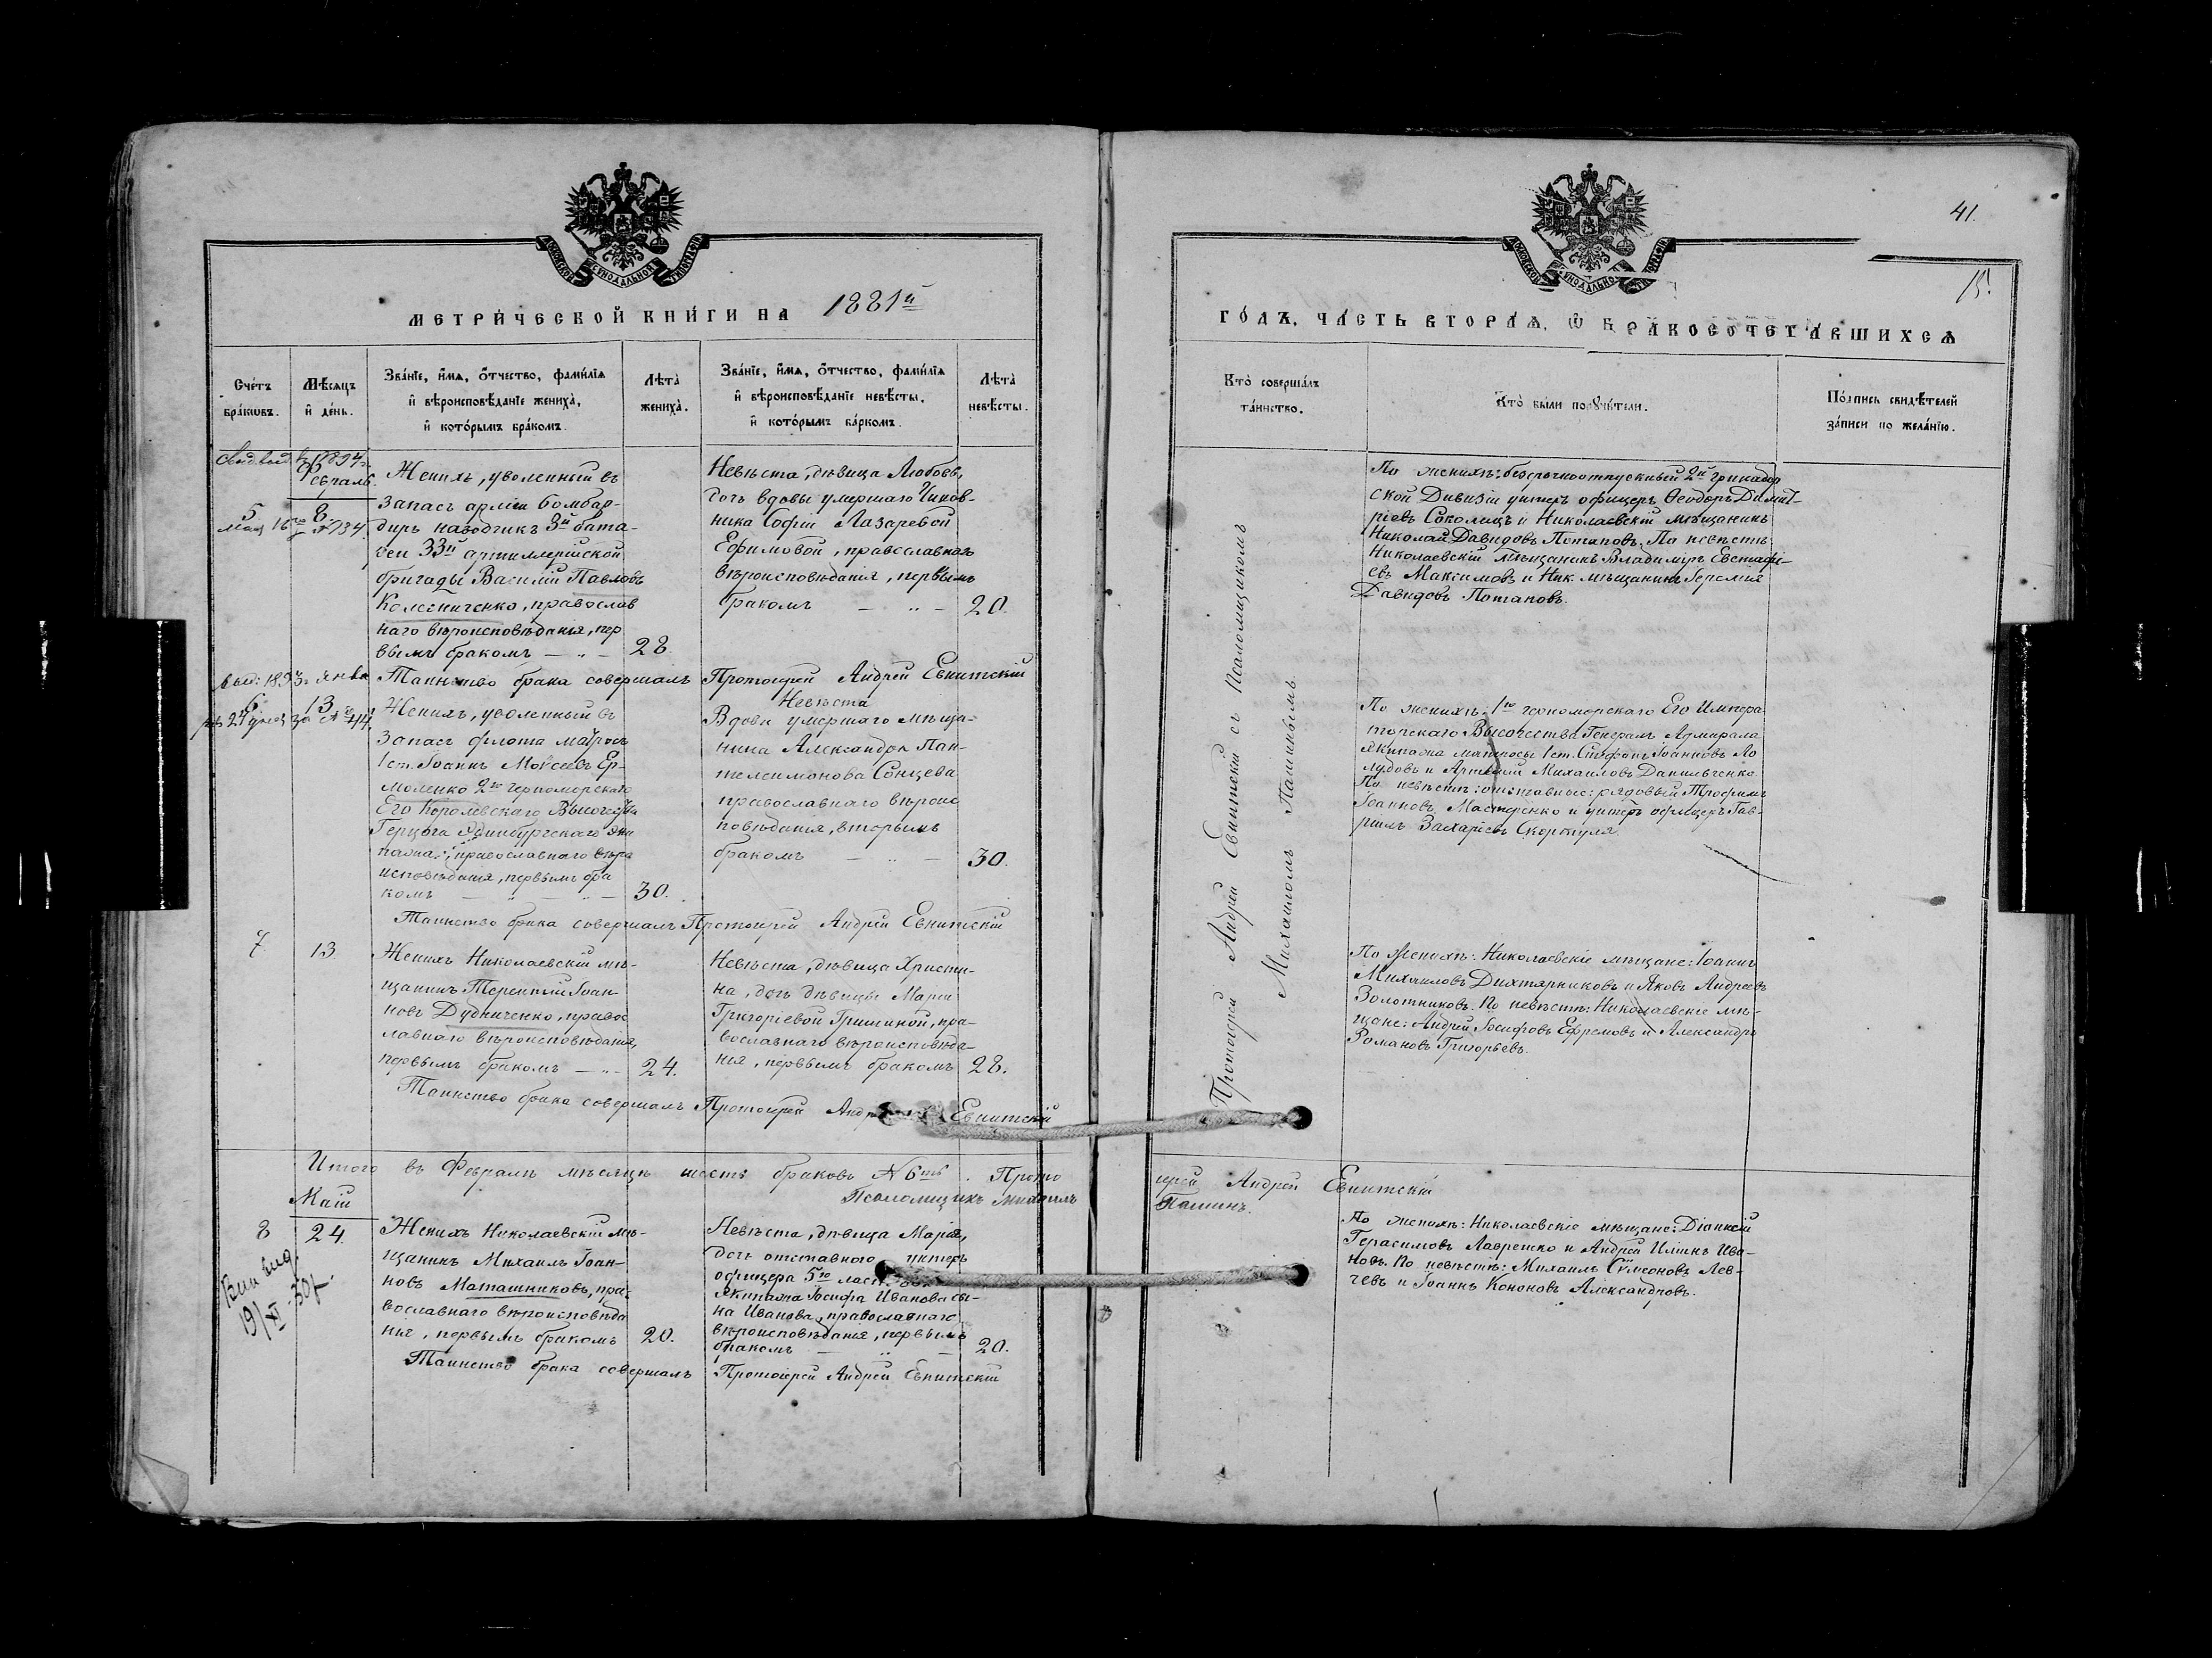 МОСКОВСКОЙ СѴНОДАЛЬНОЙ ТИПОГРАФІИ
МЕТРИ́ЧЕСКОЙ КНИ́ГИ НА 1881й
Сче́тъ бра́ковъ.
Мѣ́сяцъ и де́нь.
Зва́нїе, и́мѧ, о́тчество, фами́лїѧ
и вѣроисповѣ́данїе жениха̀,
и кото́рымъ бра́комъ.
Лѣта̀ жениха̀.
Зва́нїе, и́мѧ, о́тчество, фами́лїѧ
и вѣроисповѣ́данїе невѣ́сты,
и кото́рымъ ба́ркомъ.
Лѣта̀ невѣ́сты.
Февраль.
5
8
Женихъ, уволенный въ
запасъ арміи бомбар-
диръ наводчикъ 3й бата-
реи 33й артиллерійской
бригады Василій Павловъ
Колесниченко, православ
наго вѣроисповѣданія, пер
вымъ бракомъ — „ — 28.
Невѣста, дѣвица Любовь,
дочь вдовы умершаго Чинов-
ника Софіи Лазаревой
Ефимовой, православнаго
вѣроисповѣданія, первымъ
бракомъ — „ — 20.
Таинство брака совершалъ Протоіерей Андрей Евнитскій
6
13
Женихъ, уволенный въ
запасъ флота матросъ
1 ст. Іоаннъ Моѵсеевъ Ер-
моленко 2го Черноморскаго
Его Королевскаго Высочества
Герцога Эдинбургскаго эки
пажа, православнаго вѣро
исповѣданія, первымъ бра
комъ — „ — „ — 30.
Невѣста
Вдова умершаго мѣща-
нина Александра Пан-
телеимонова Сонцева
православнаго вѣроис
повѣданія, вторымъ
бракомъ — „ — 30.
Таинство брака совершалъ Протоіерей Андрей Евнитскій
7
13
Женихъ Николаевскій мѣ-
щанинъ Терентій Іоан-
новъ Дудниченко, правос
лавнаго вѣроисповѣданія,
первымъ бракомъ — „ — 24.
Невѣста, дѣвица Христи-
на, дочь дѣвицы Маріи
Григоріевой Гришиной, пра-
вославнаго вѣроисповѣда-
нія, первымъ бракомъ 28.
Таинство брака совершалъ Протоіерей Евнитскій
Итого въ Февралѣ мѣсяцѣ шесть браковъ N 6ть. Прото
Псаломщикъ Михаилъ
Май
8
24.
Женихъ Николаевскій мѣ-
щанинъ Михаилъ Іоан-
новъ Маташниковъ, пра-
вославнаго вѣроисповѣда
нія, первымъ бракомъ 20.
Невѣста, дѣвица Марія,
дочь отставного унтеръ
офицера 5го
Экипажа Іосифа Иванова сы-
на Иванова, православнаго
вѣроисповѣданія, первымъ
бракомъ — „ — 20.
Таинство брака совершалъ Протоіерей Андрей Евнитскій
41.
15.
МОСКОВСКОЙ СѴНОДАЛЬНОЙ ТИПОГРАФІИ
ГО́ДЪ, ЧА́СТЬ ВТОРА́Ѧ, Ѡ БРАКОСОЧЕТА́ВШИХСѦ
Кто̀ соверша́лъ
та́инство.
Кто̀ бы́ли порꙋчи́тели.
По́дпись свидѣ́телей
за́писи по жела́нїю.
Протоіерей Андрей Евнитскій съ Псаломщикомъ
Михаиломъ Пашинымъ.
По женихѣ: безсрочноотпускный 2й гринадер
ской Дивизіи унтеръ офицеръ Ѳеодоръ Димит-
ріевъ Соколицъ и Николаевскій мѣщанинъ
Николай Давидовъ Потаповъ. По невѣстѣ:
Николаевскій мѣщанинъ Владиміръ Евстафі-
евъ Максимовъ и Ник. мѣщанинъ Іеремія
Давидовъ Потаповъ.
По женихѣ: 1го черноморскаго Его Импера
торскаго Высочества Генералъ Адмирала
экипажа матросы 1 ст. Стефанъ Іоанновъ Го
лубовъ и Артемій Михаиловъ Данильченко.
По невѣстѣ: отставные: рядовый Трофимъ
Іоанновъ Мастеренко и унтеръ офицеръ Гав-
ріилъ Захаріевъ Скортуля.
По женихѣ: Николаевскіе мѣщане: Іоаннъ
Михаиловъ Дихтярниковъ и Яковъ Андреевъ
Золотниковъ. По невѣстѣ: Николаевскіе мѣ-
щане: Андрей Іосифовъ Ефремовъ и Александръ
Романовъ Григорьевъ.
іерей Андрей Евнитскій
Пашинъ.
По женихѣ: Николаевскіе мѣщане: Діонисій
Герасимовъ Лавренко и Андрей Илiинъ Ива-
новъ. По невѣстѣ: Михаилъ Сѵмеоновъ Лев-
чевъ и Іоаннъ Кононовъ Александровъ.